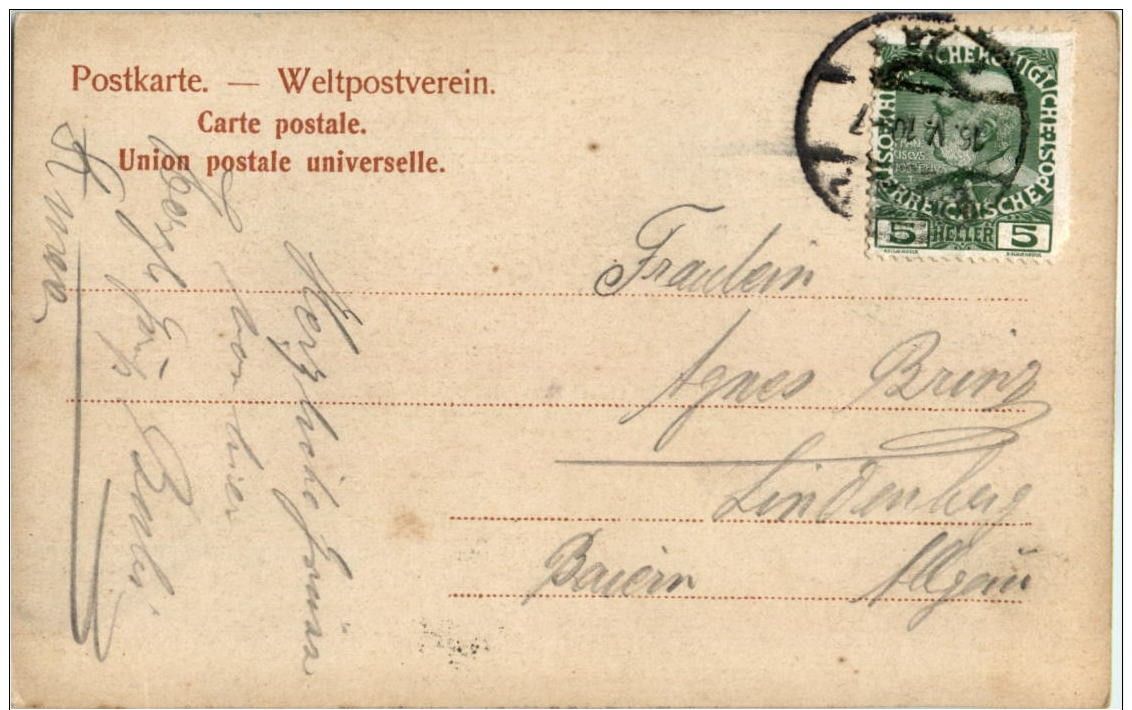 Postkarte. — Weltpostverein.
Carte postale.
Union postale universelle.
KAISERLICHE KÖNIGLICHE ÖSTERREICHISCHE POST
5 HELLER 5
15. V. 10
Fräulein
Agnes Brinz
Lindenberg
Baiern Allgäu
Herzliche Grüsse
von hier
Herzl. Gruß